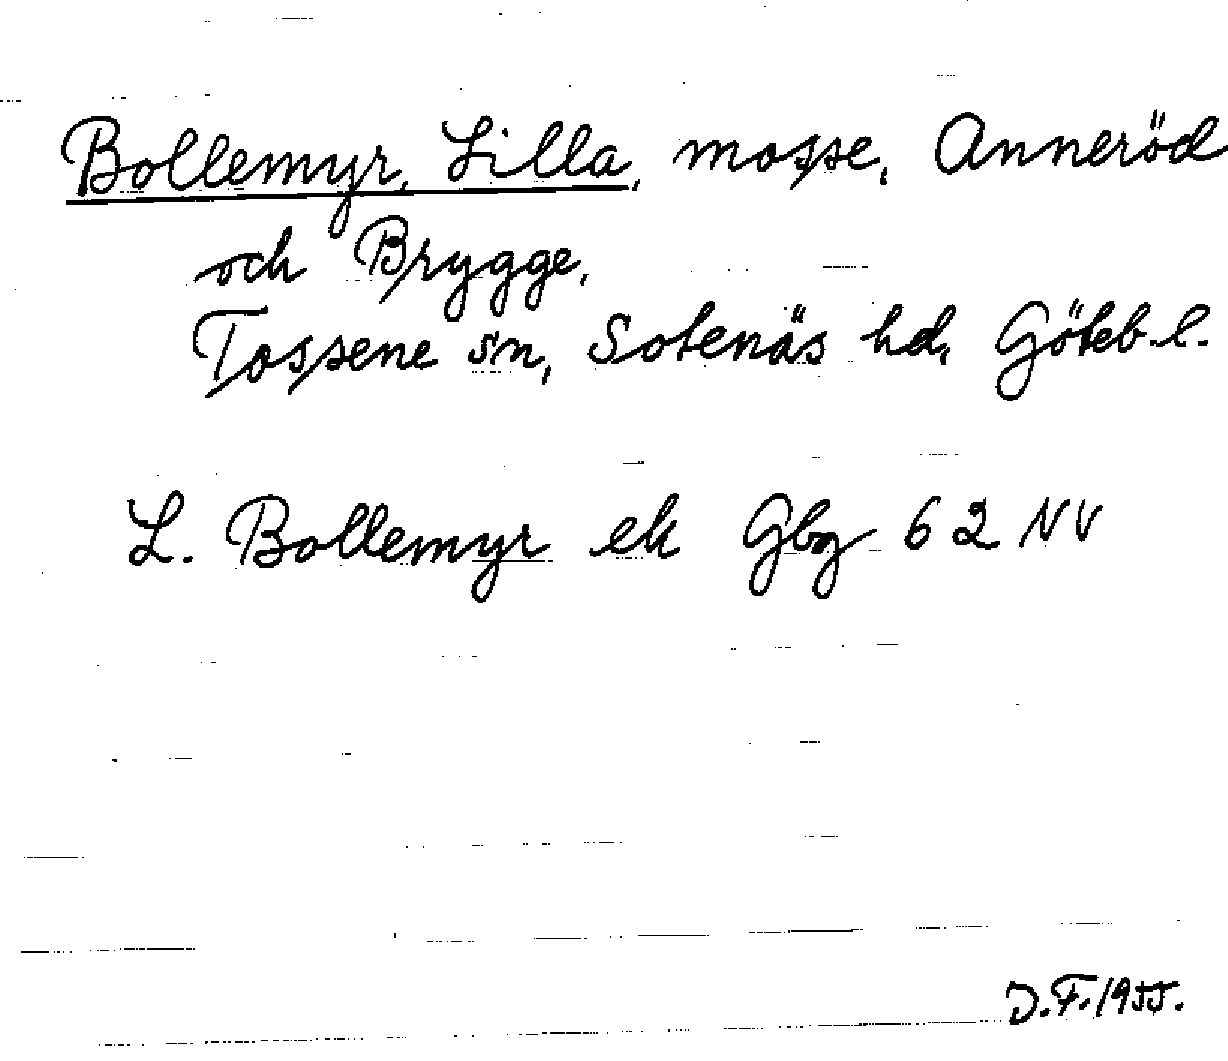 Bollemyr, Lilla, mosse, Anneröd
och Brygge,
Tossene sn, Sotenäs hd, Göteb. l.
L. Bollemyr ek Gbg 62 NV
D.F. 1955.